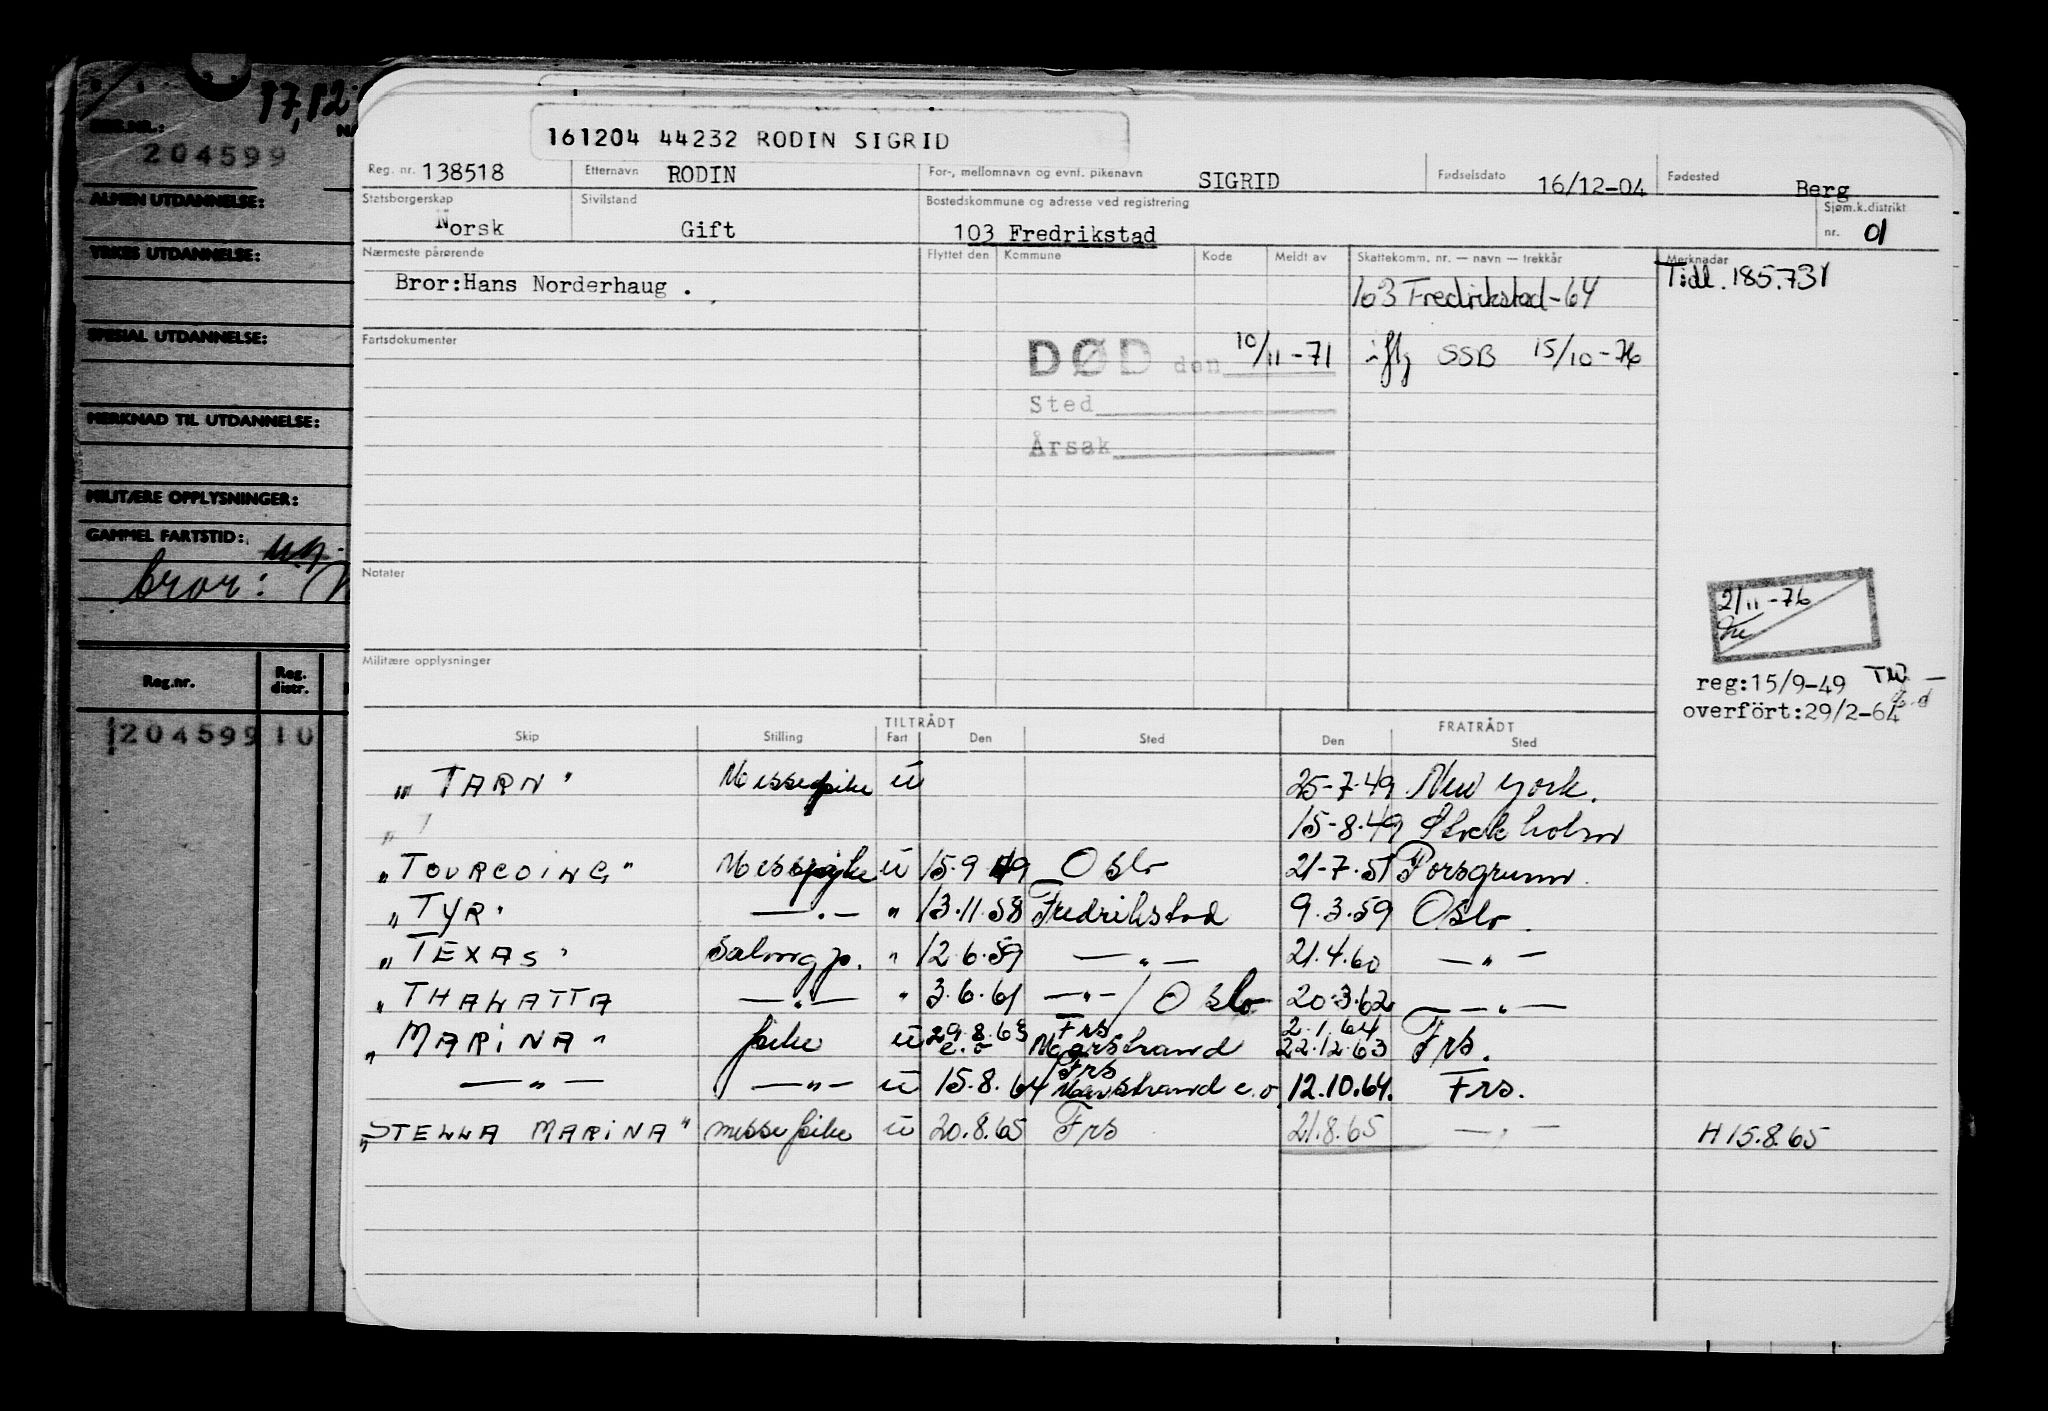 17,12
REG.NR.:
204599
ALMEN UTDANNELSE:
YRKES UTDANNELSE:
SPESIAL UTDANNELSE:
MERKNAD TIL UTDANNELSE:
MILITÆRE OPPLYSNINGER:
GAMMEL FARTSTID:
bror:
Reg.nr. Reg. distr.
204599 10
161204 44232 RODIN SIGRID
Reg. nr. 138518 Etternavn RODIN For-, mellomnavn og evnt. pikenavn SIGRID Fødselsdato 16/12-04 Fødested Berg
Statsborgerskap Norsk Sivilstand Gift Bostedskommune og adresse ved registrering 103 Fredrikstad Sjøm.k.distrikt nr. 01
Nærmeste pårørende Flyttet den Kommune Kode Meldt av Skattekomm. nr. — navn — trekkår Merknader
Bror:Hans Norderhaug . 103 Fredrikstad-64 Tidl. 185.731
Fartsdokumenter DØD den 10/11-71 iflg SSB 15/10-76
Sted
Årsak
Notater
21/11-76
Militære opplysninger
reg:15/9-49
overført:29/2-64
TILTRÅDT FRATRÅDT
Skip Stilling Fart Den Sted Den Sted
"TARN" Messepike u 25-7-49 New York.
15-8-49 Stockholm
"TOURCOING" Messepike u 15.9 49 Oslo 21-7-51 Porsgrunn.
"TYR" —.— " 13.11.58 Fredrikstad 9.3.59 Oslo.
"TEXAS" Salongp. " 12.6.59 —"— 21.4.60 —"—
"THALATTA —"— " 3.6.61 —"—/ Oslo 20.3.62 —"—
"MARINA" pike u 29.8.63 e.o Frs Marstrand 2.1.64 22.12.63 Frs.
—"— —"— u 15.8.64 Frs Marstrand e.o. 12.10.64. Frs.
"STELLA MARINA" messepike u 20.8.65 Frs 21.8.65 —"— H 15.8.65